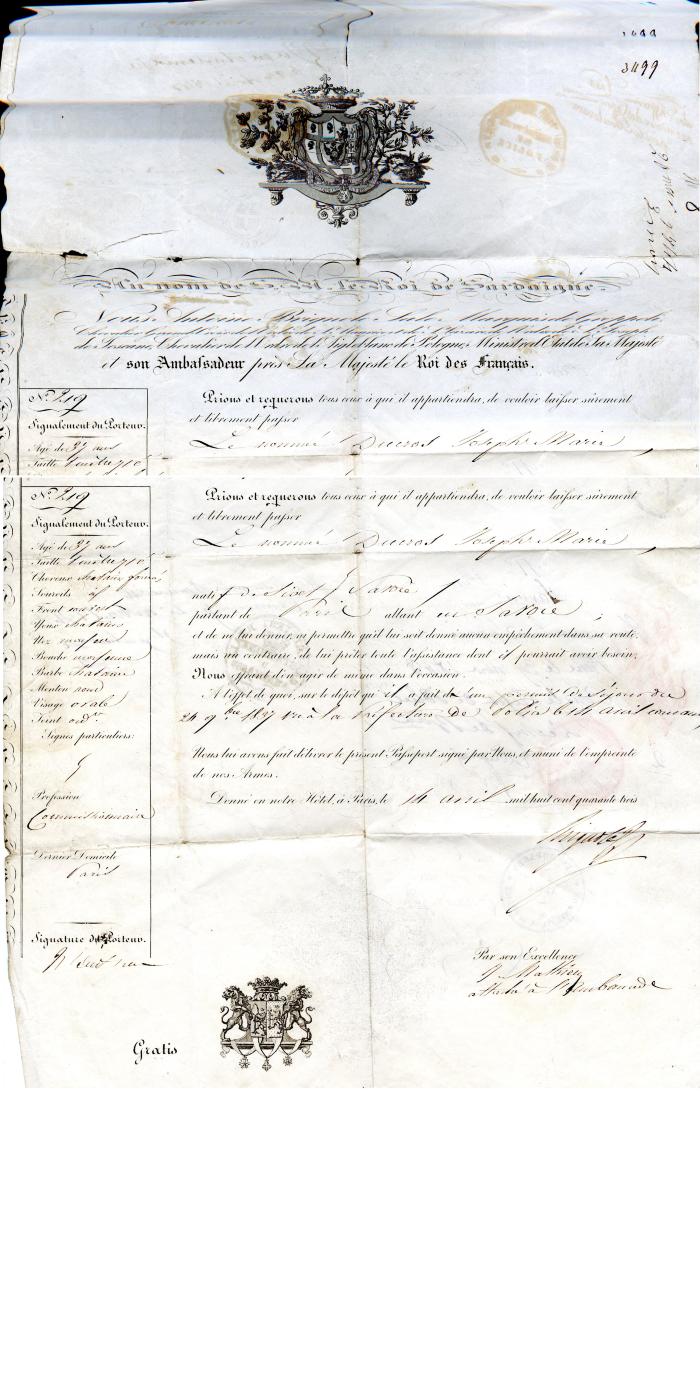 3499
Au nom de S. M. le Roi de Sardaigne.
Nous Antoine Brignole Sale Marquis de Groppoli
Toscane, Chevalier de l'Ordre de l'Aigle blanc de Pologne, Ministre d'Etat de Sa Majesté
et son Ambassadeur près Sa Majesté le Roi des Français.
N.° 219
Signalement du Porteur.
Agé de 37 ans
Taille
Prions et requerons tous ceux à qui il appartiendra, de vouloir laisser sûrement
et librement passer
Le nommé Ducros Joseph Marie
N.° 219
Signalement du Porteur.
Agé de 37 ans
Taille
Cheveux chatain foncé
Sourcils id
Front
Yeux chatains
Nez moyen
Bouche moyenne
Barbe chataine
Menton rond
Visage ovale
Teint ord.re
Signes particuliers:
Profession
Commissionnaire
Dernier Domicile
Paris
Signature du Porteur.
Prions et requerons tous ceux à qui il appartiendra, de vouloir laisser sûrement
et librement passer
Le nommé Ducros Joseph Marie,
natif de Savoie
partant de Paris allant en Savoie ;
et de ne lui donner, ni permettre qu'il lui soit donné aucun empêchement dans sa route,
mais au contraire, de lui prêter toute l'assistance dont il pourrait avoir besoin,
Nous offrant d'en agir de même dans l'occasion.
A l'effet de quoi, sur le dépôt qu'il a fait de son permis de séjour du
24 9bre 1837 vu à la Préfecture de Police le 14 avril courant
Nous lui avons fait délivrer le présent Passeport signé par Nous, et muni de l'empreinte
de nos Armes.
Donné en notre Hôtel, à Paris, le 14 avril mil huit cent quarante trois
Par son Excellence
Mathieu
attaché à l'ambassade
Gratis